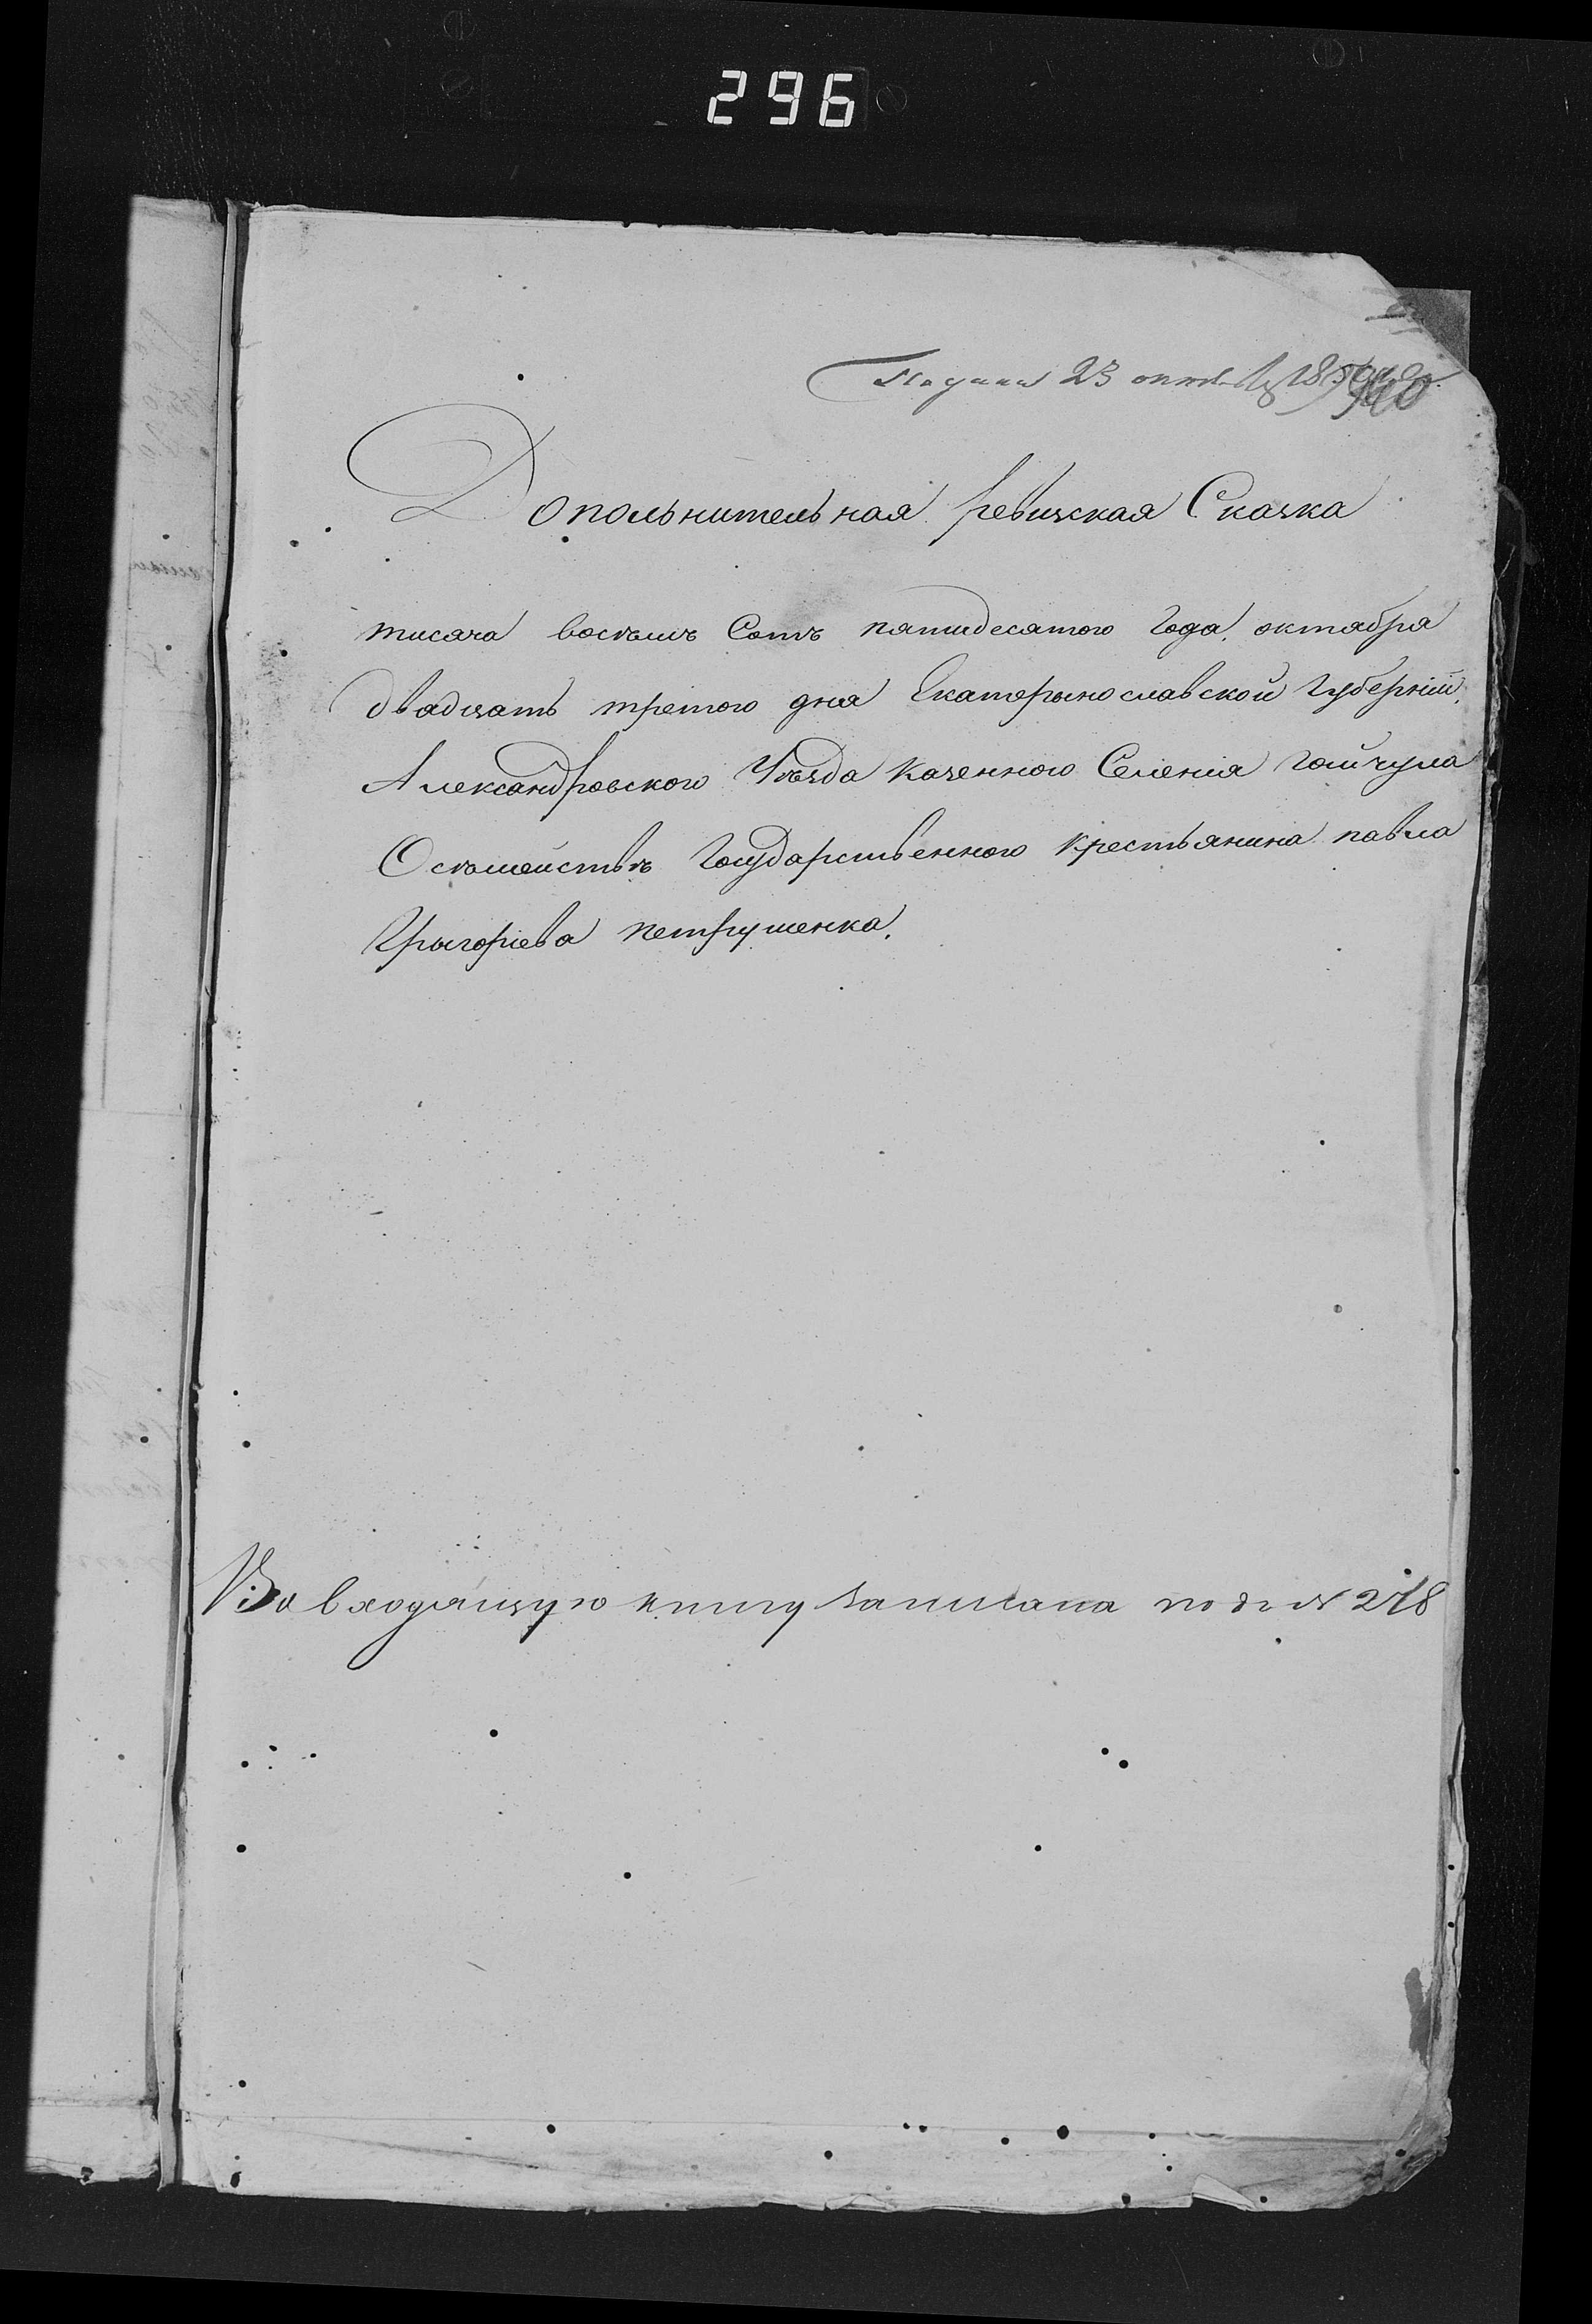 296
Подана 23 октяб 1850
Дополънителъная ревизская Сказка
тисяча восѣмъ Сотъ пятидесятого Года. октября
двадцать третого дня Екатерынославской Губерніи.
Александровского Уѣзда Казенного Селенія Гайчула
Осѣмействѣ Государственного крестьянина павла
Грыгоріева петрушенка.
Во входящую книгу записана подъ № 278